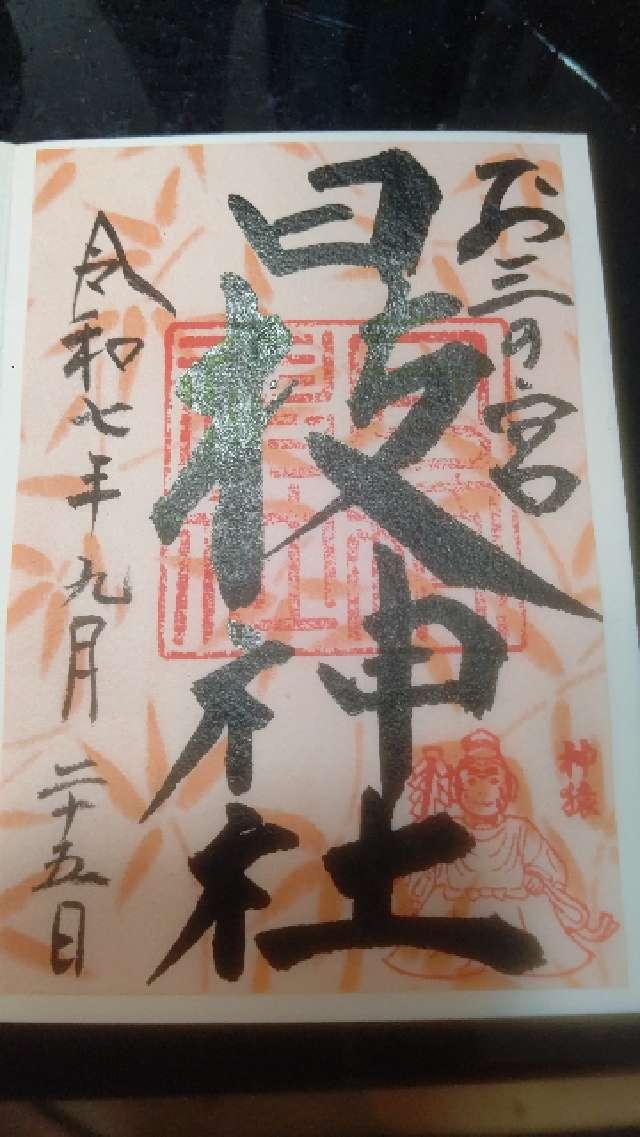 お三の宮
日枝神社
令和七年九月二十五日
神猿